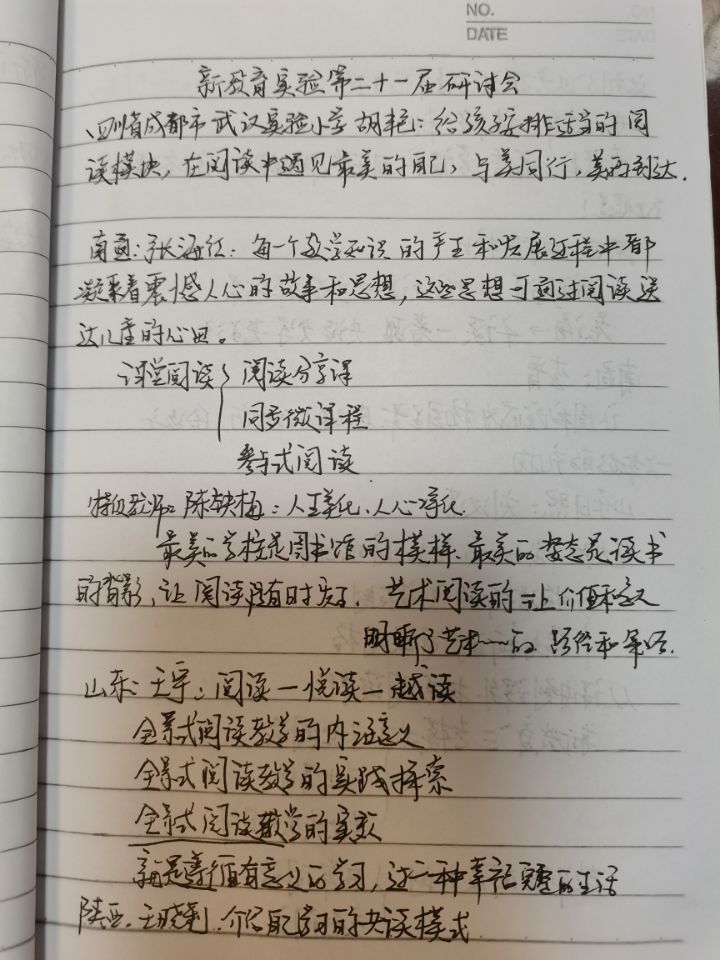 NO.
DATE
新教育实验第二十一届研讨会
四川省成都市武汉实验小学胡艳：给孩子安排适当的阅
读模块，在阅读中遇见最美的自己，与美同行，美再到达.
南通：张海红：每一个数学知识的产生和发展过程中都
凝聚着震憾人心的故事和思想，这些思想可通过阅读送
达儿童的心田。
课堂阅读 阅读分享课
同步微课程
参与式阅读
特级教师：陈铁梅：人文化、人心净化.
最美的学校是图书馆的模样、最美的姿态是读书
的背影，让阅读随时发生. 艺术阅读的 价值和意义
明晰了艺术 的路径和策略.
山东：王宇：阅读—悦读—越读
全景式阅读教学的内涵意义
全景式阅读教学的实践探索
全景式阅读教学的实效
有意义的学习，过一种幸福完整的生活
陕西. 王晓 ：介绍 的共读模式